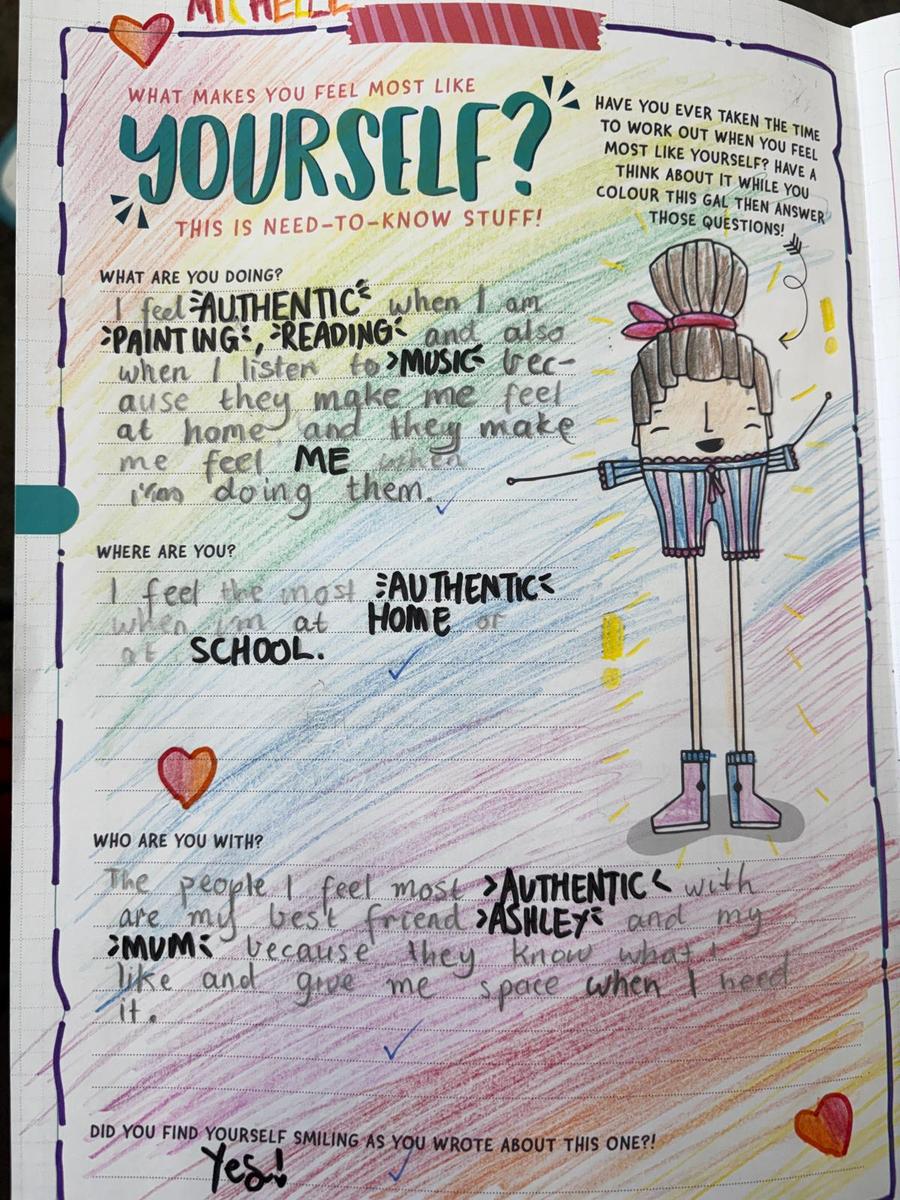 MICHELLE
WHAT MAKES YOU FEEL MOST LIKE
YOURSELF?
THIS IS NEED-TO-KNOW STUFF!
HAVE YOU EVER TAKEN THE TIME
TO WORK OUT WHEN YOU FEEL
MOST LIKE YOURSELF? HAVE A
THINK ABOUT IT WHILE YOU
COLOUR THIS GAL THEN ANSWER
THOSE QUESTIONS!
WHAT ARE YOU DOING?
I feel AUTHENTIC when I am
PAINTING, READING and also
when I listen to MUSIC bec-
ause they make me feel
at home and they make
me feel ME when
i'm doing them.
WHERE ARE YOU?
I feel the most AUTHENTIC
when i'm at HOME or
at SCHOOL.
WHO ARE YOU WITH?
The people I feel most AUTHENTIC with
are my best friend ASHLEY and my
MUM because they know what I
like and give me space when I need
it.
DID YOU FIND YOURSELF SMILING AS YOU WROTE ABOUT THIS ONE?!
Yes!